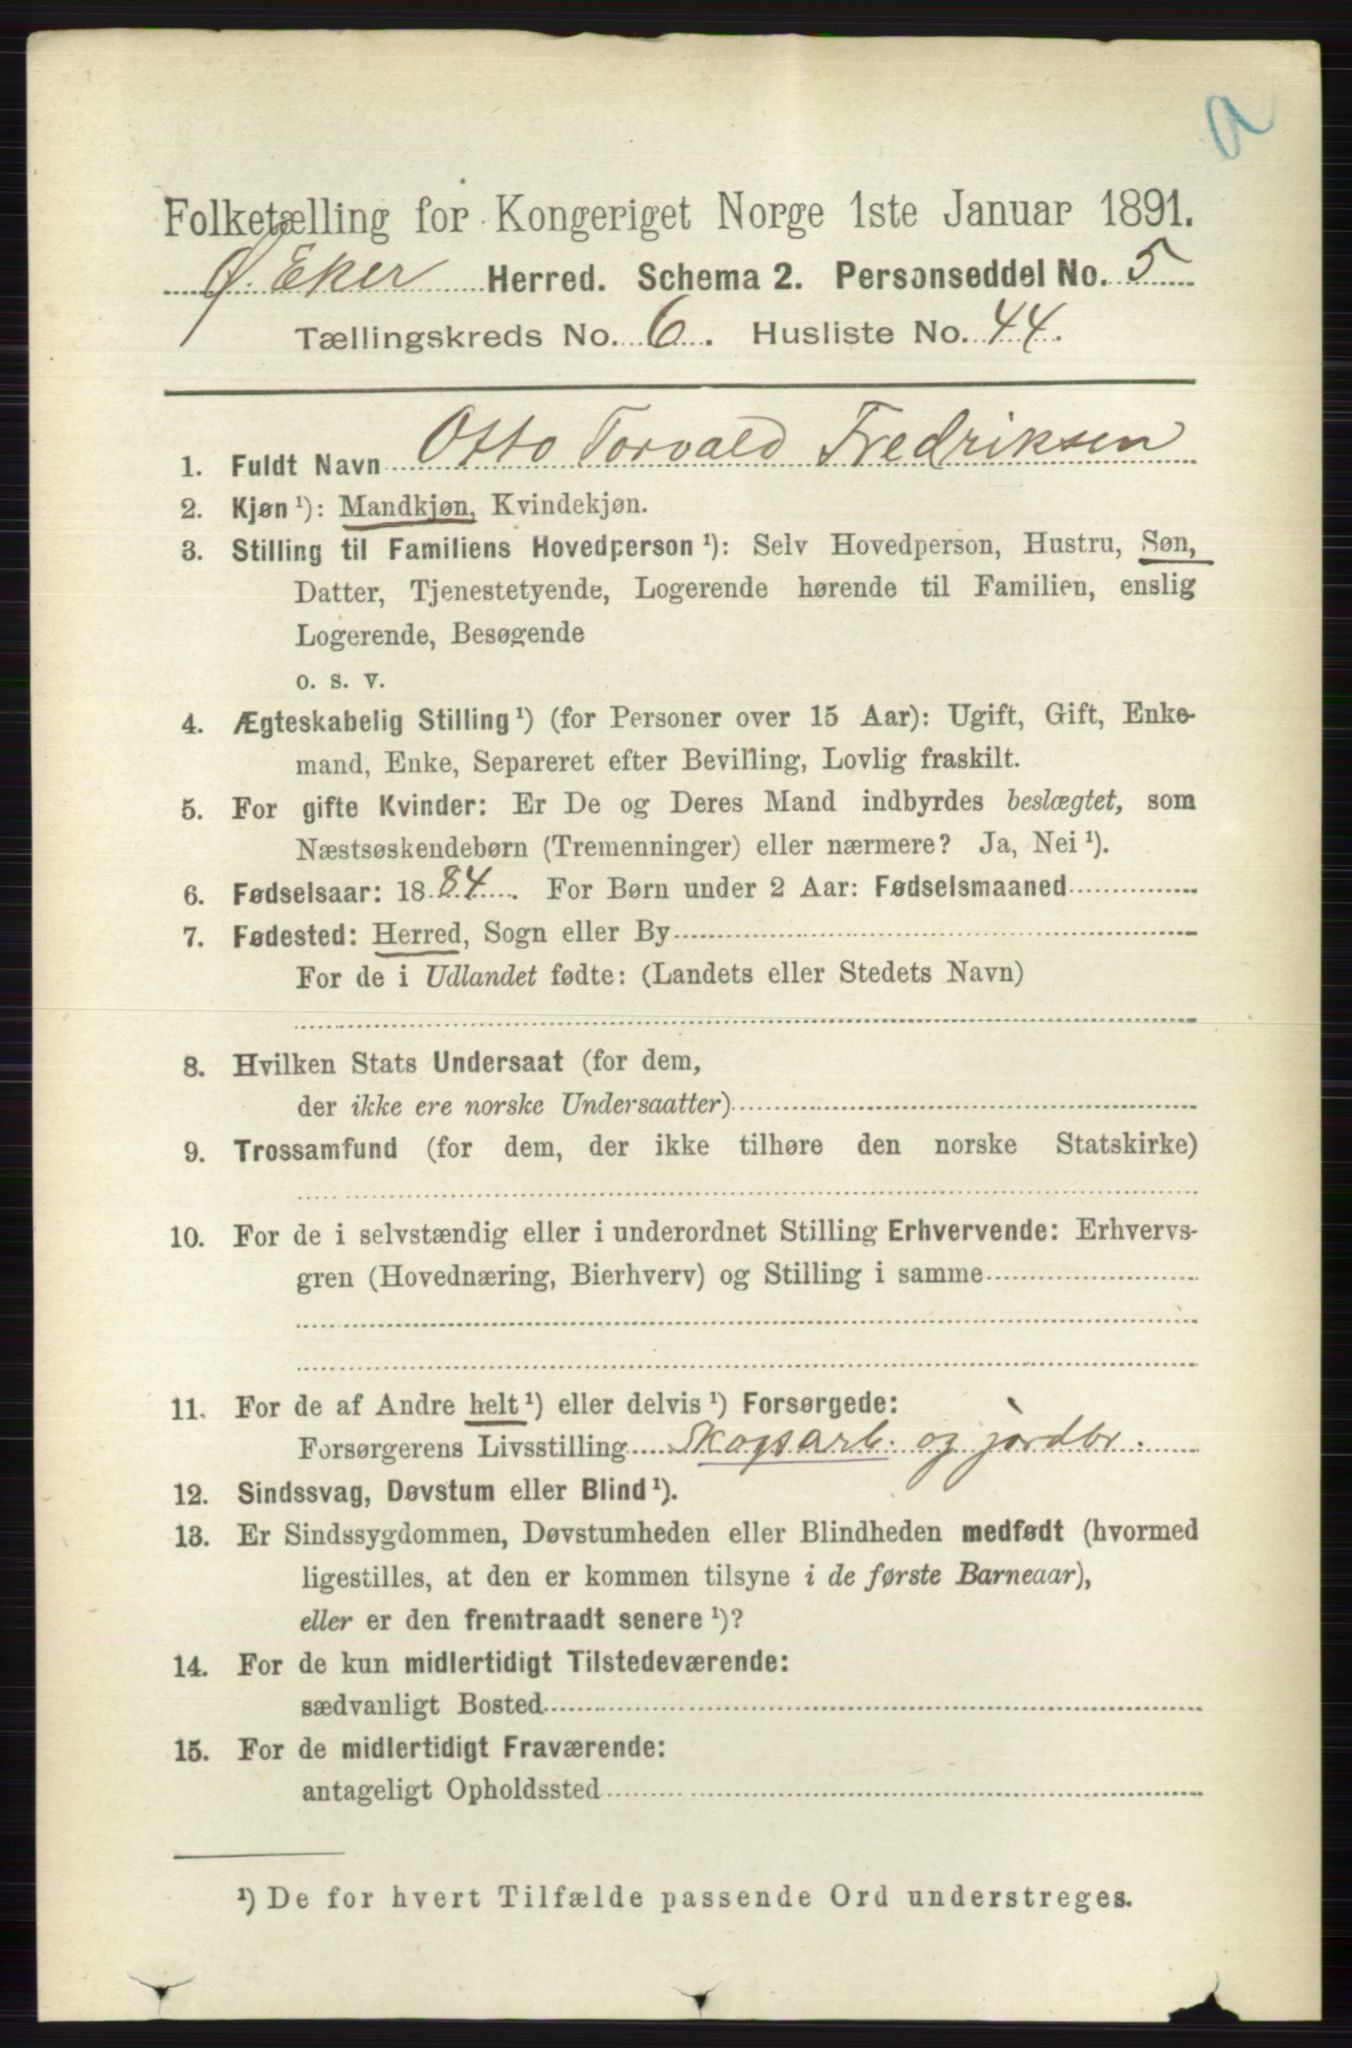 a
Folketælling for Kongeriget Norge 1ste Januar 1891.
Ø. Eker Herred. Schema 2. Personseddel No. 5
Tællingskreds No. 6. Husliste No. 44.
1. Fuldt Navn Otto Torvald Fredriksen
2. Kjøn ¹): Mandkjøn, Kvindekjøn.
3. Stilling til Familiens Hovedperson ¹): Selv Hovedperson, Hustru, Søn,
Datter, Tjenestetyende, Logerende hørende til Familien, enslig
Logerende, Besøgende
o. s. v.
4. Ægteskabelig Stilling ¹) (for Personer over 15 Aar): Ugift, Gift, Enke-
mand, Enke, Separeret efter Bevilling, Lovlig fraskilt.
5. For gifte Kvinder: Er De og Deres Mand indbyrdes beslægtet, som
Næstsøskendebørn (Tremenninger) eller nærmere? Ja, Nei ¹).
6. Fødselsaar: 1884. For Børn under 2 Aar: Fødselsmaaned
7. Fødested: Herred, Sogn eller By
For de i Udlandet fødte: (Landets eller Stedets Navn)
8. Hvilken Stats Undersaat (for dem,
der ikke ere norske Undersaatter)
9. Trossamfund (for dem, der ikke tilhøre den norske Statskirke)
10. For de i selvstændig eller i underordnet Stilling Erhvervende: Erhvervs-
gren (Hovednæring, Bierhverv) og Stilling i samme
11. For de af Andre helt ¹) eller delvis ¹) Forsørgede:
Forsørgerens Livsstilling Skogsarb. og jordbr.
12. Sindssvag, Døvstum eller Blind ¹).
13. Er Sindssygdommen, Døvstumheden eller Blindheden medfødt (hvormed
ligestilles, at den er kommen tilsyne i de første Barneaar),
eller er den fremtraadt senere ¹)?
14. For de kun midlertidigt Tilstedeværende:
sædvanligt Bosted
15. For de midlertidigt Fraværende:
antageligt Opholdssted
¹) De for hvert Tilfælde passende Ord understreges.